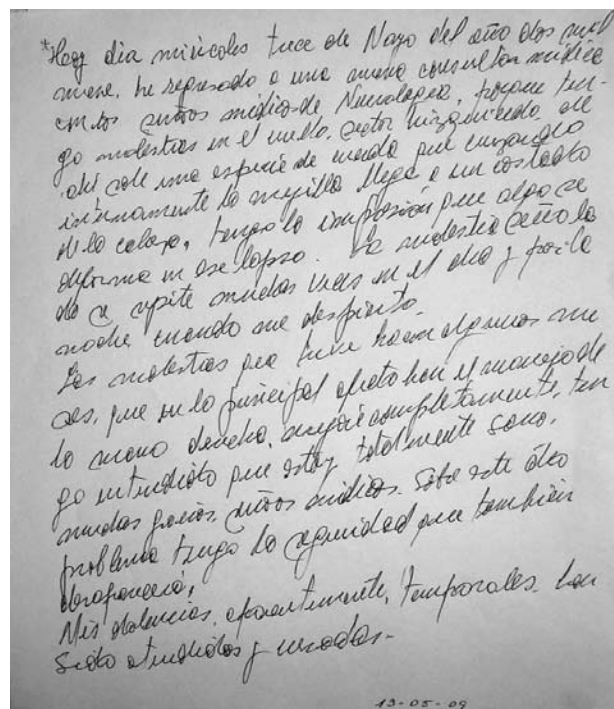 *Hoy día miércoles trece de Mayo del año dos mil
nueve, he regresado a una nueva consulta médica
con los médicos de Neurología, porque ten-
go molestias en el cuello, sector izquierdo, de
ahí sale una especie de onda que
internamente la mejilla llega a un costado
de la cabeza, tengo la impresión que algo se
deforma en ese lapso. La molestia
da se repite muchas veces en el día y por la
noche cuando me despierto.
Las molestias que tuve hacen algunos me
ses, que en lo principal afectaban el manejo de
la mano derecha, mejoré completamente, ten
go entendido que estoy totalmente sano,
muchas gracias, médicos. Sobre este otro
problema tengo la seguridad que también
desaparecerá,
Mis dolencias, aparentemente, temporales, han
sido atendidas y curadas.-
13-05-09